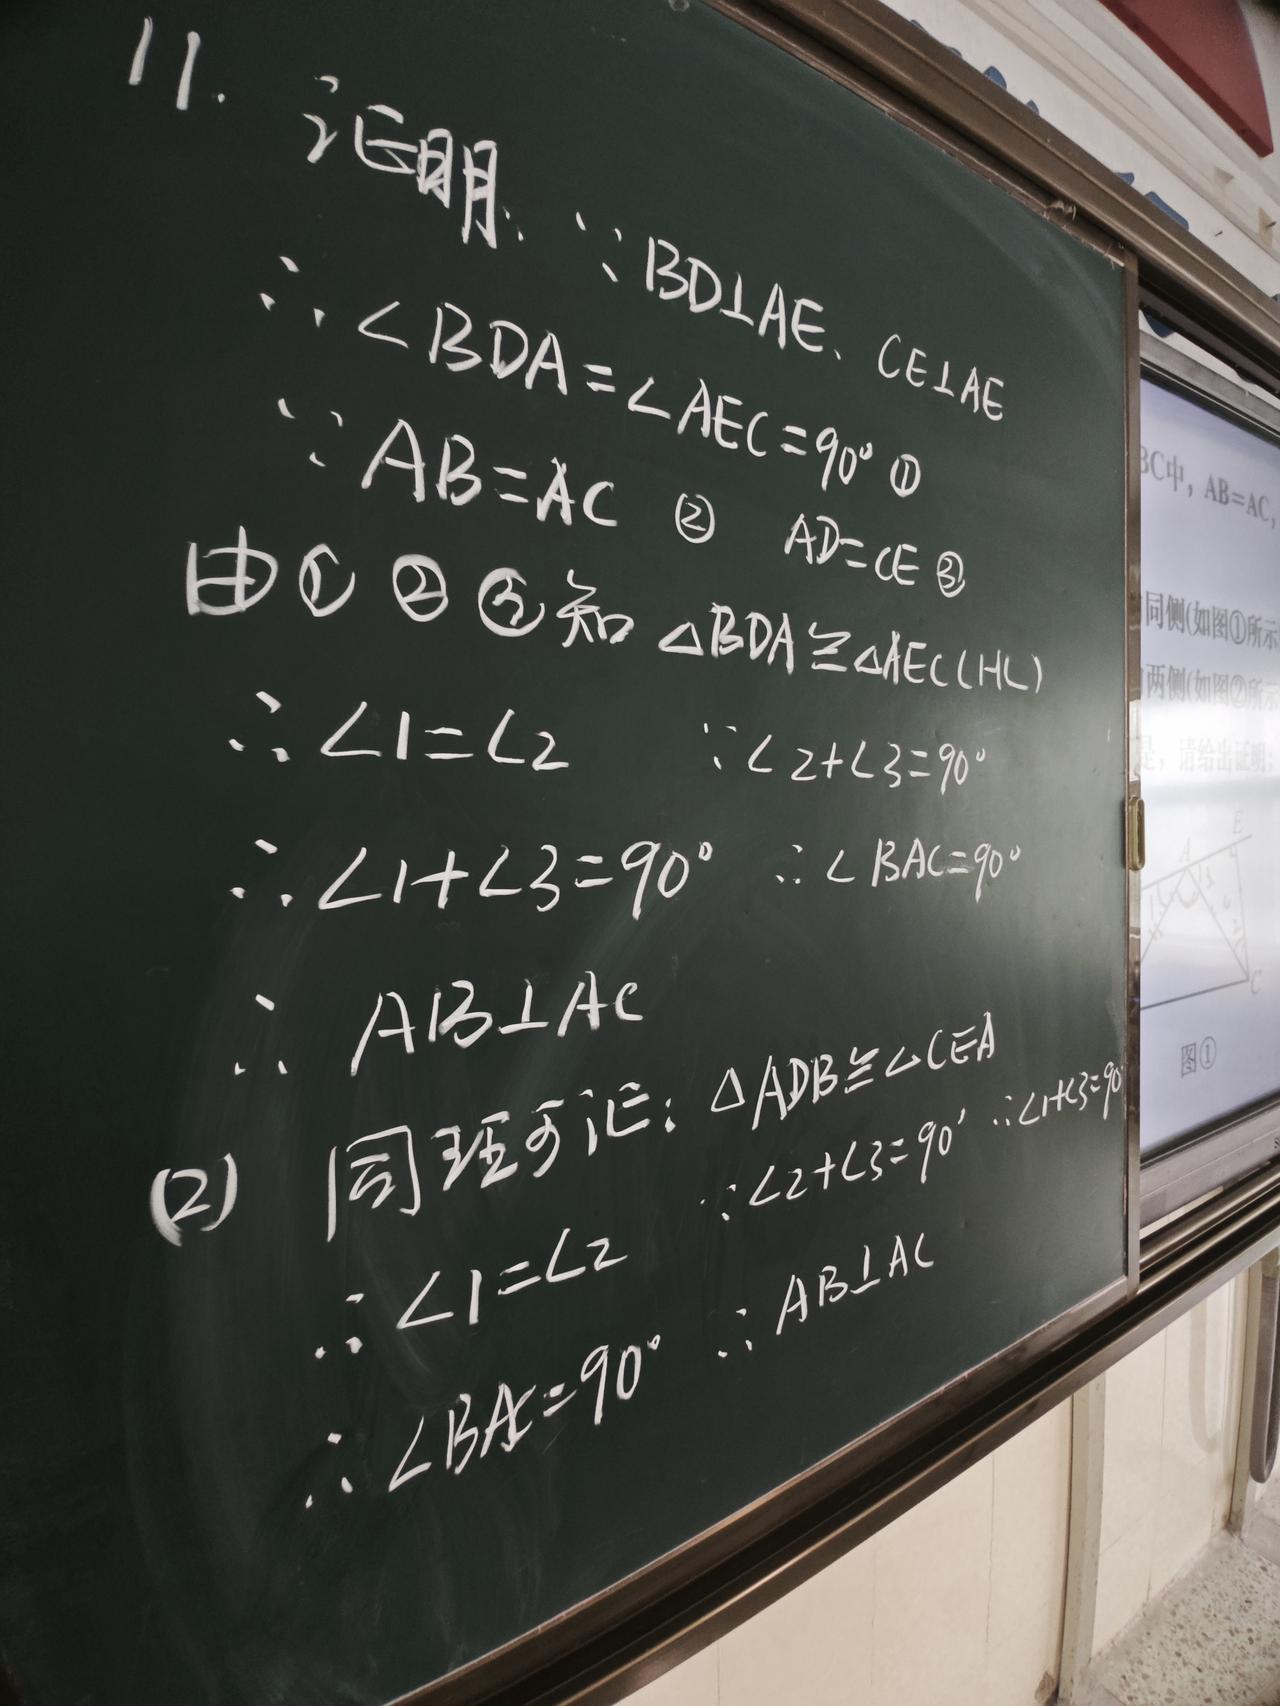 11. 证明: ∵BD⊥AE、CE⊥AE
∴∠BDA=∠AEC=90° ①
∵AB=AC ② AD=CE ③
由①②③知 △BDA≌△AEC(HL)
∴∠1=∠2 ∵∠2+∠3=90°
∴∠1+∠3=90° ∴∠BAC=90°
∴ AB⊥AC
(2) 同理可证: △ADB≌△CEA
∴∠1=∠2 ∵∠2+∠3=90° ∴∠1+∠3=90°
∴∠BAC=90° ∴AB⊥AC
BC中, AB=AC,
同侧(如图①所示
两侧(如图②所示
是, 请给出证明;
E
A
C
图①